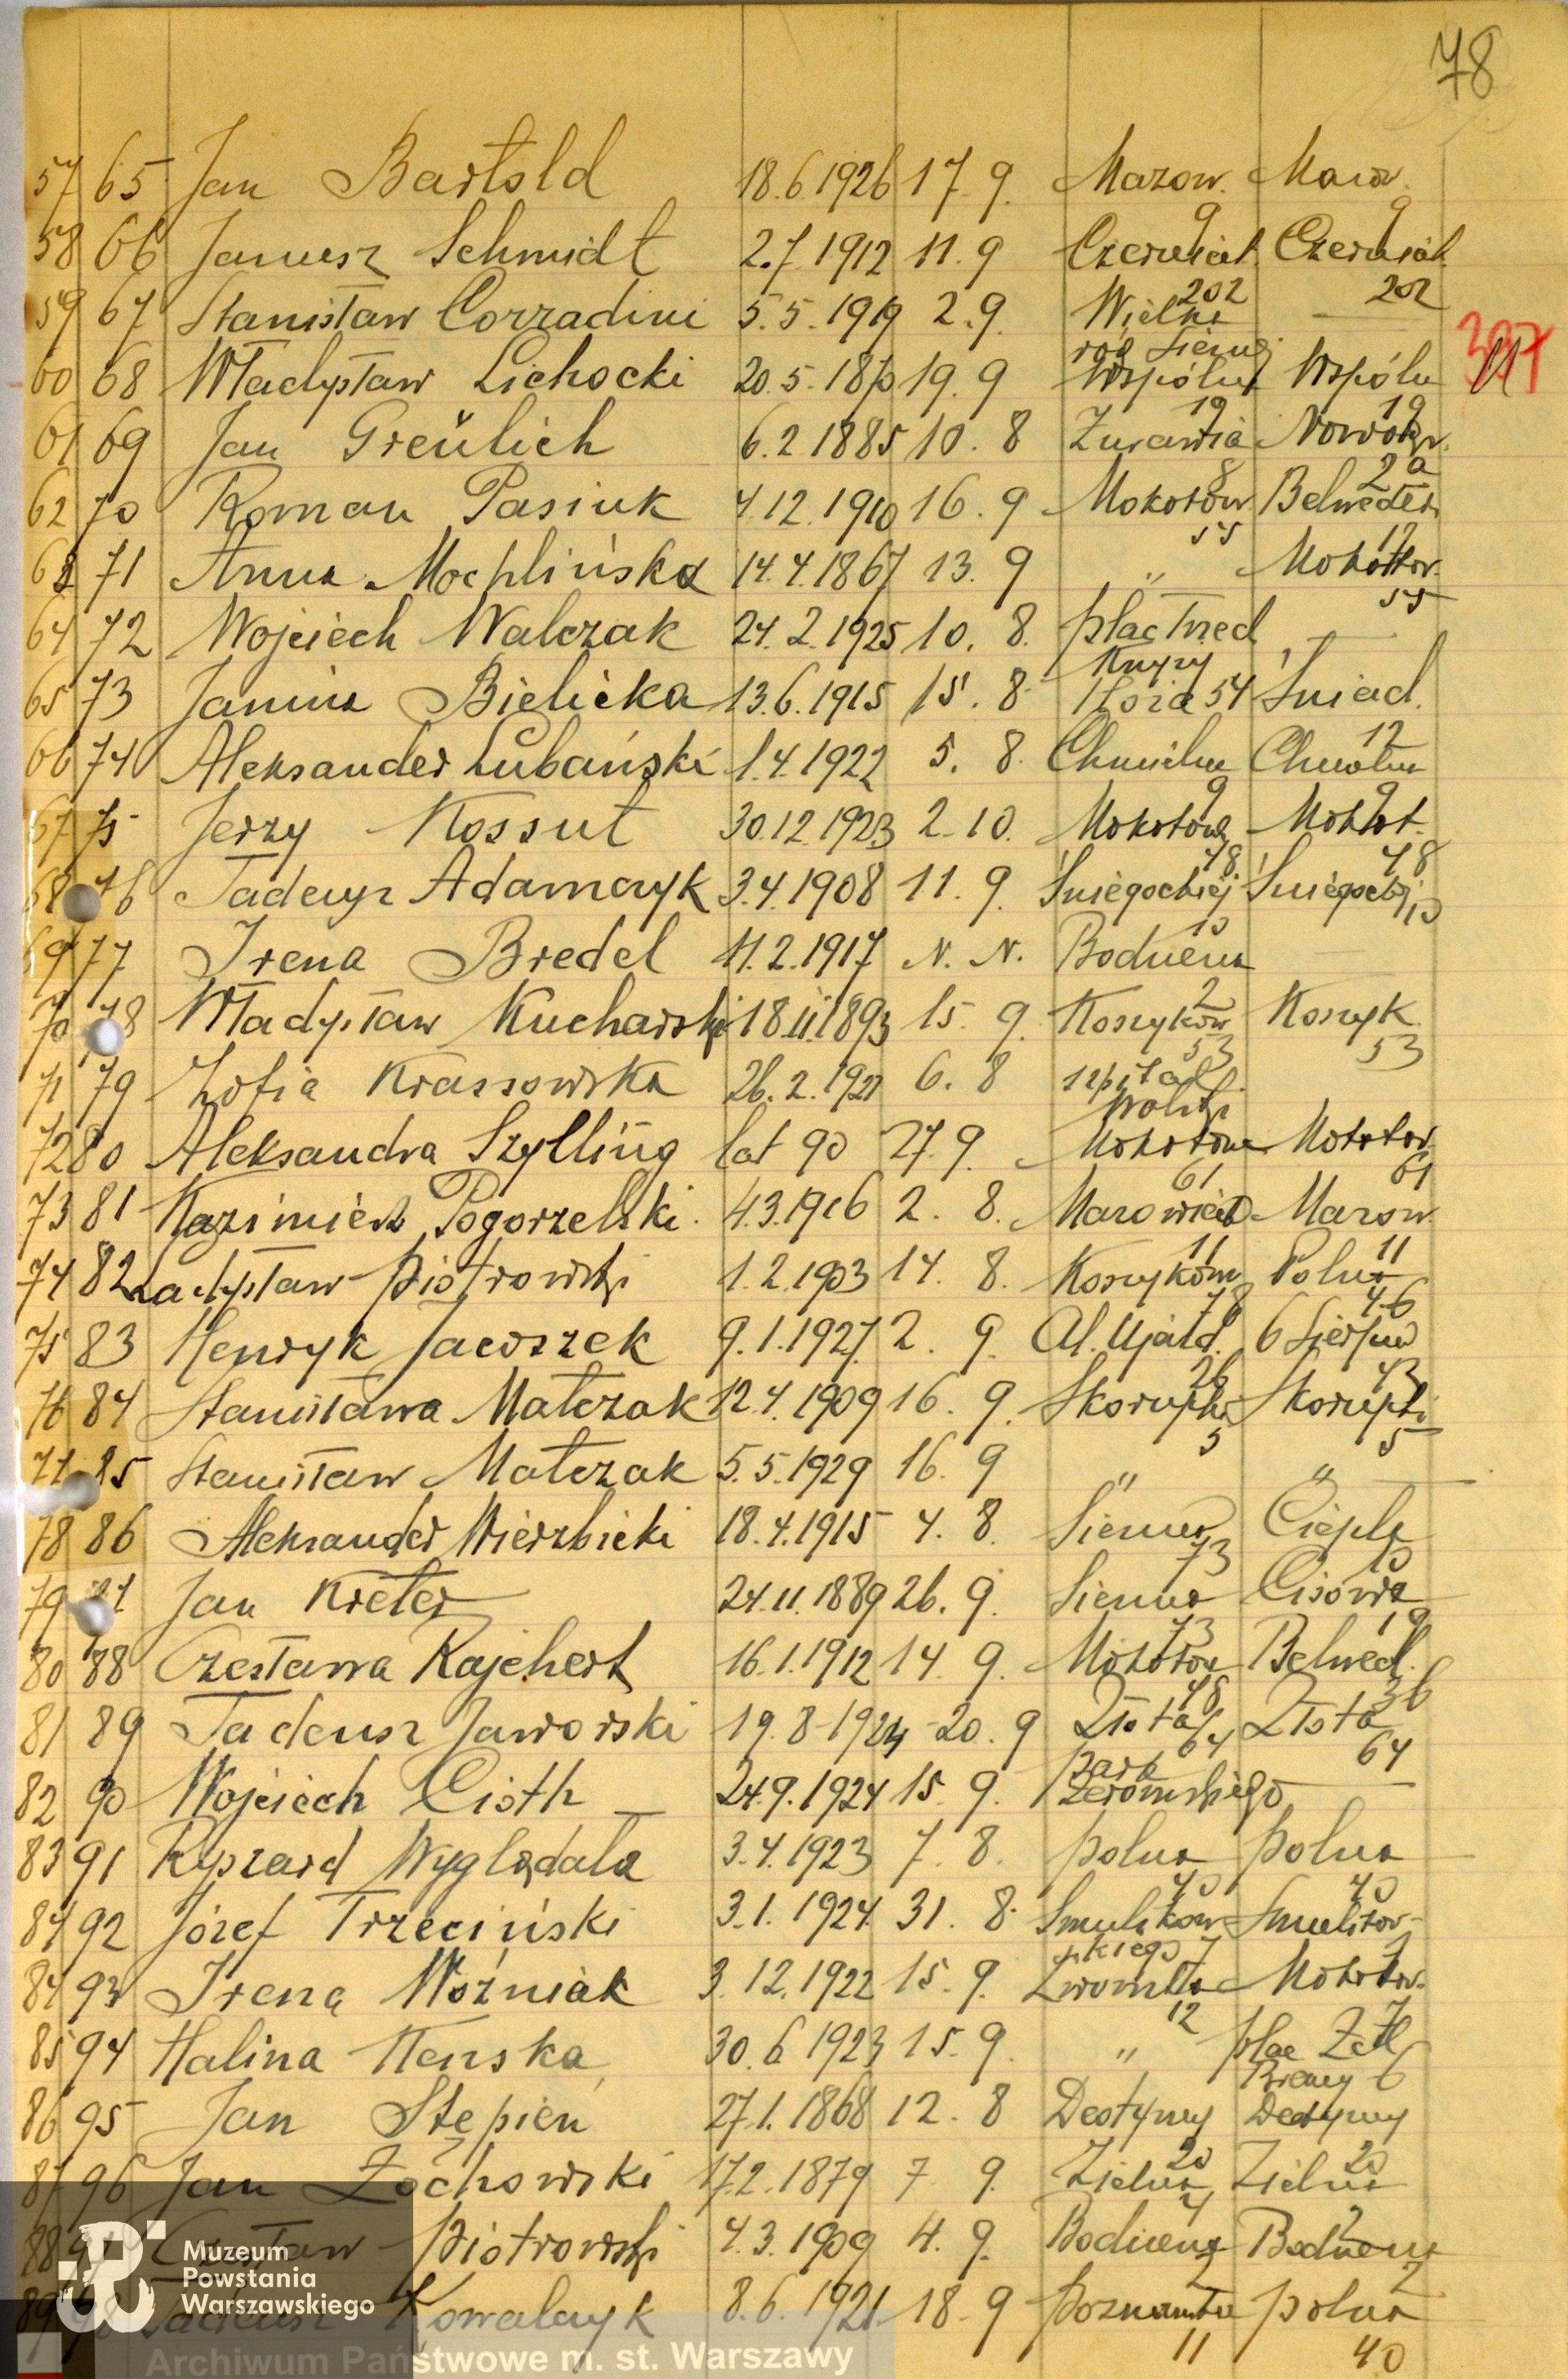 78
57 65 Jan Bartold 18.6.1926 17.9. Mazow. Mazow.
9 9
58 66 Janusz Schmidt 2.7.1912 11.9 Czerniak. Czerniak.
202 202
59 67 Stanisław Corradini 5.5.1919 2.9. Wielka —
róg Siennej
60 68 Władysław Lichocki 20.5.1870 19.9 Wspólna Wspóln
19 19
61 69 Jan Greülich 6.2.1885 10.8 Żurawia Nowogr.
8 2a
62 70 Roman Pasiuk 4.12.1910 16.9 Mokotow. Belweder.
55 12
63 71 Anna Mochlińska 14.4.1867 13.9 " Mokotow.
55
64 72 Wojciech Walczak 24.2.1925 10.8. plac Trzech —
Krzyży
65 73 Janina Bielicka 13.6.1915 15.8. Hoża 54 Śniad.
12
66 74 Aleksander Lubański 1.4.1922 5.8. Chmielna Chmieln
9 9
67 75 Jerzy Kossut 30.12.1923 2.10. Mokotow. Mokot.
48 48
68 76 Tadeusz Adamczyk 3.4.1908 11.9. Śniegockiej Śniegockiej
10 10
69 77 Irena Bredel 11.2.1917 N.N. Boduena —
2
70 78 Władysław Kucharski 18.11.1893 15.9. Koszykow Koszyk.
53 53
71 79 Zofia Krassowska 26.2.1921 6.8 szpital
Wolski
72 80 Aleksandra Szylling lat 90 27.9. Mokotow Mokotow.
61 61
73 81 Kazimierz Pogorzelski 4.3.1916 2.8. Mazowieck Mazow.
11 11
74 82 Ładysław Piotrowski 1.2.1903 14.8. Koszykow Polna
78 46
75 83 Henryk Jaroszek 9.1.1927 2.9. Al. Ujazd. 6 Sierpnia
26 43
76 84 Stanisława Matczak 12.4.1909 16.9. Skorupki Skorupki
5 5
77 85 Stanisław Matczak 5.5.1929 16.9 " "
78 86 Aleksander Wierzbicki 18.4.1915 4.8. Sienna Ciepła
73 10
79 87 Jan Kreter 24.11.1889 26.9. Sienna Cisowa
73 19
80 88 Czesława Rajchert 16.1.1912 14.9. Mokotow Belwed.
48 36
81 89 Tadeusz Jaworski 19.8.1924 20.9 Złota Złota
64 64
82 90 Wojciech Cioth 24.9.1924 15.9. park
Żeromskiego —
83 91 Ryszard Wyglądała 3.4.1923 7.8. polna polna
40 40
84 92 Józef Trzeciński 3.1.1924 31.8. Smulikow Smulikow
skiego 7 7
84 93 Irena Woźniak 3.12.1922 15.9. Mokotow.
12 7
85 94 Halina Kenska 30.6.1923 15.9. " plac Zba
6
86 95 Jan Stępień 27.1.1868 12.8 Dedyny
20 20
87 96 Jan Żochowski 17.2.1879 7.9. Zielna Zielna
7
88 97 Czesław Piotrowski 4.3.1909 4.9. Boduena Boduena
2 2
89 98 Tadeusz Kowalczyk 8.6.1921 18.9 Poznańska polna
11 40
Muzeum
Powstania
Warszawskiego
Archiwum Państwowe m. st. Warszawy